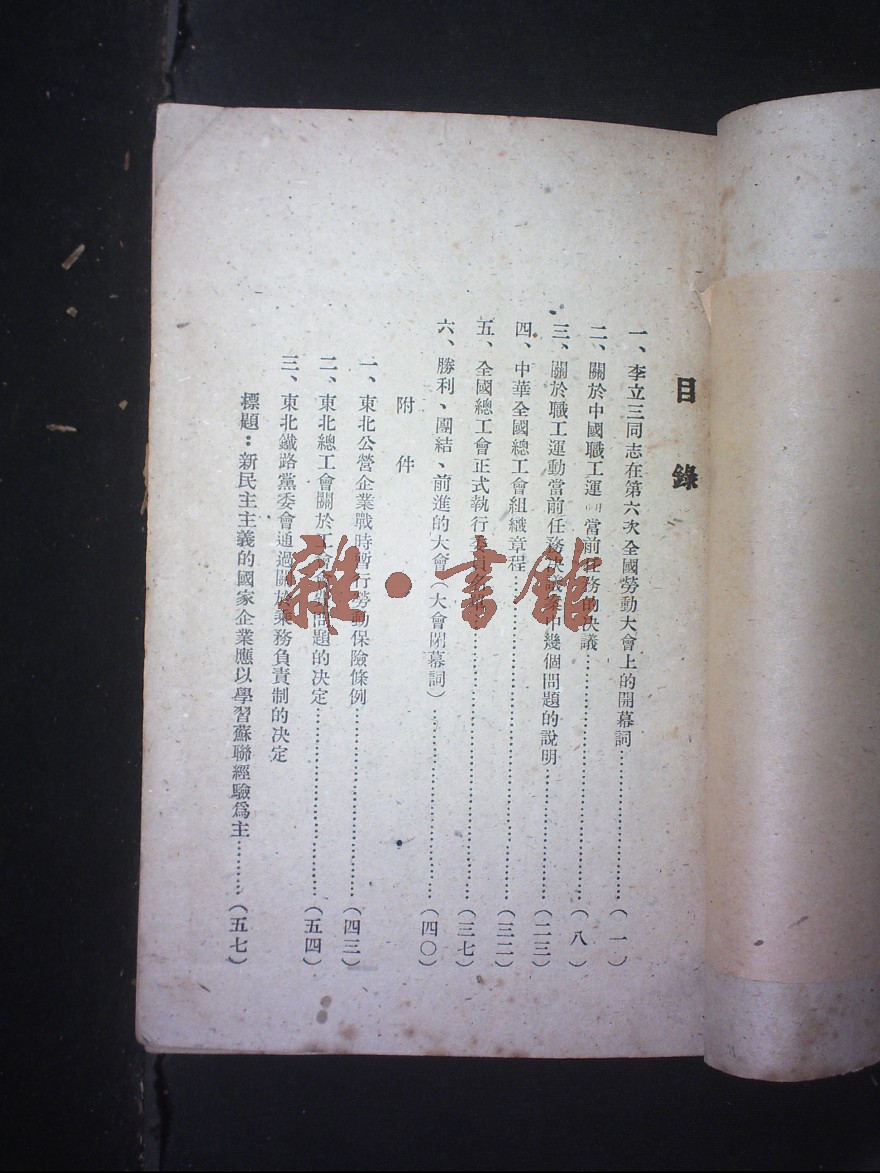 目錄
一、李立三同志在第六次全國勞動大會上的開幕詞……（一）
二、關於中國職工運 當前任務的決議……（八）
三、關於職工運動當前任務決議案中幾個問題的說明……（二三）
四、中華全國總工會組織章程……（三二）
五、全國總工會正式執行委員名單……（三七）
六、勝利、團結、前進的大會（大會閉幕詞）……（四〇）
附件
一、東北公營企業戰時暫行勞動保險條例……（四三）
二、東北總工會關於工會 問題的决定……（五四）
三、東北鐵路黨委會通過關於乘務負責制的决定
標題：新民主主義的國家企業應以學習蘇聯經驗爲主……（五七）
雜·書館